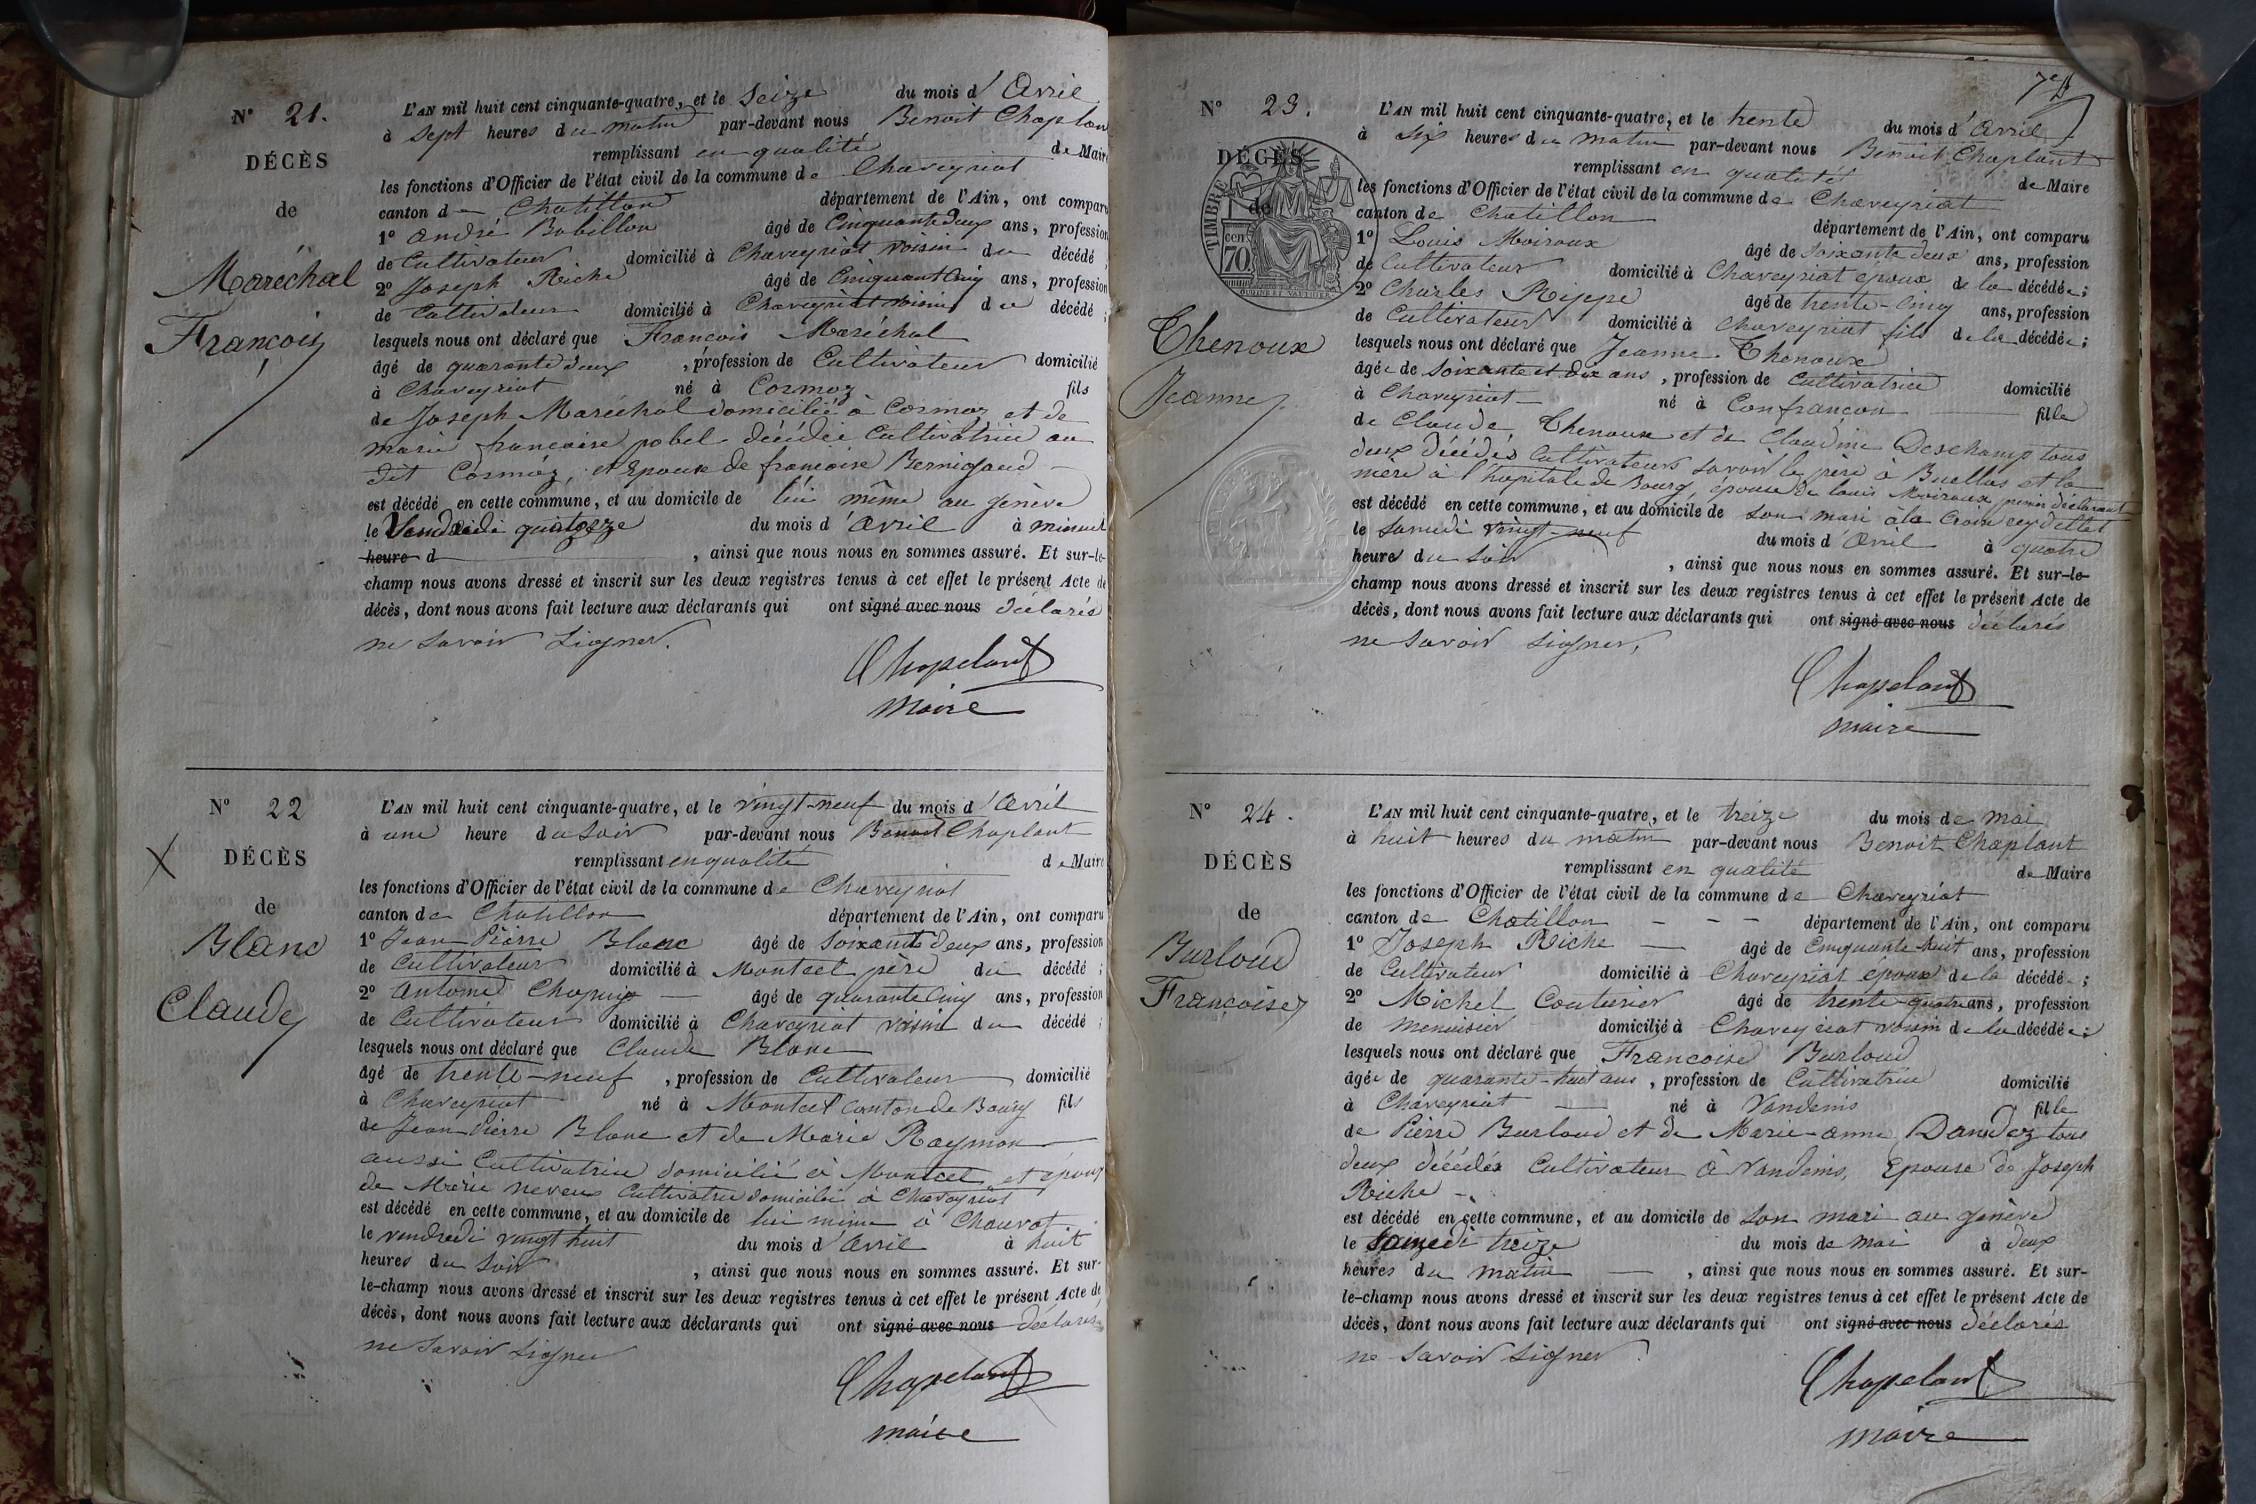 N° 21.
DÉCÈS
de
Maréchal
François
L'AN mil huit cent cinquante-quatre, et le Seize du mois d'Avril
à sept heures du matin par-devant nous Benoit Chaplan
remplissant en qualité de Maire
les fonctions d'Officier de l'état civil de la commune de Chaveyriat
canton de Chatillon département de l'Ain, ont comparu
1° andré Bobillon âgé de Cinquante deux ans, profession
de Cultivateur domicilié à Chaveyriat voisin du décédé;
2° Joseph Riche âgé de Cinquante Cinq ans, profession
de Cultivateur domicilié à Chaveyriat voisin du décédé;
lesquels nous ont déclaré que François Maréchal
âgé de quarante deux, profession de Cultivateur domicilié
à Chaveyriat né à Cormoz fils
de Joseph Maréchal domicilié à Cormoz et de
marie françoise pobel décédée Cultivatrice au
dit Cormoz, et Epoux de francoise Bernigaud
est décédé en cette commune, et au domicile de lui même au genève
le Vendredi quatorze du mois d'avril à minuit
heure d , ainsi que nous nous en sommes assuré. Et sur-le-
champ nous avons dressé et inscrit sur les deux registres tenus à cet effet le présent Acte de
décès, dont nous avons fait lecture aux déclarants qui ont signé avec nous déclarés
ne savoir signer.
Chapelant
maire
N° 22
DÉCÈS
de
Blanc
Claude
L'AN mil huit cent cinquante-quatre, et le vingt-neuf du mois d'Avril
à une heure du soir par-devant nous Benoit Chaplant
remplissant en qualité de Maire
les fonctions d'Officier de l'état civil de la commune de Chaveyriat
canton de Chatillon département de l'Ain, ont comparu
1° Jean-Pierre Blanc âgé de soixante deux ans, profession
de Cultivateur domicilié à Montcet père du décédé;
2° antoine Chapuis âgé de quarante Cinq ans, profession
de Cultivateur domicilié à Chaveyriat voisin du décédé;
lesquels nous ont déclaré que Claude Blanc
âgé de trente-neuf, profession de Cultivateur domicilié
à Chaveyriat né à Montcet Canton de Bourg fils
de Jean Pierre Blanc et de Marie Raymon
aussi Cultivatrice domicilié à Montcet et époux
de Marie neveux Cultivatrice domicilié à Chaveyriat
est décédé en cette commune, et au domicile de lui même à Chauvot
le vendredi vingt huit du mois d'Avril à huit
heures du soir, ainsi que nous nous en sommes assuré. Et sur-
le-champ nous avons dressé et inscrit sur les deux registres tenus à cet effet le présent Acte de
décès, dont nous avons fait lecture aux déclarants qui ont signé avec nous déclarés
ne savoir signer
Chapelant
maire
7e
N° 23.
DÉCÈS
de
TIMBRE
cen
70
Thenoux
Jeanne
L'AN mil huit cent cinquante-quatre, et le trente du mois d'avril
à six heures du matin par-devant nous Benoit Chaplant
remplissant en qualité de Maire
les fonctions d'Officier de l'état civil de la commune de Chaveyriat
canton de Chatillon département de l'Ain, ont comparu
1° Louis Moiroux âgé de soixante deux ans, profession
de Cultivateur domicilié à Chaveyriat epoux de la décédée;
2° Charles Rippe âgé de trente-cinq ans, profession
de Cultivateur domicilié à Chaveyriat fils de la décédée;
lesquels nous ont déclaré que Jeanne Thenoux
âgée de soixante et dix ans, profession de Cultivatrice domicilié
à Chaveyriat né à Confrançon fille
de Claude Thenoux et de Claudine Deschamp tous
deux décédés Cultivateurs savoir le père à Buellas et la
mère à l'hopitale de Bourg, épouse de louis Moiroux premier déclarant
est décédé en cette commune, et au domicile de son mari à la Croix
le samedi vingt-neuf du mois d'avril à quatre
heures du soir, ainsi que nous nous en sommes assuré. Et sur-le-
champ nous avons dressé et inscrit sur les deux registres tenus à cet effet le présent Acte de
décès, dont nous avons fait lecture aux déclarants qui ont signé avec nous déclarés
ne savoir signer,
Chapelant
maire
N° 24.
DÉCÈS
de
Burloud
Françoise
L'AN mil huit cent cinquante-quatre, et le treize du mois de mai
à huit heures du matin par-devant nous Benoit Chaplant
remplissant en qualité de Maire
les fonctions d'Officier de l'état civil de la commune de Chaveyriat
canton de Chatillon département de l'Ain, ont comparu
1° Joseph Riche âgé de Cinquante-huit ans, profession
de Cultivateur domicilié à Chaveyriat époux de la décédée;
2° Michel Couturier âgé de trente-quatre ans, profession
de menuisier domicilié à Chaveyriat voisin de la décédée;
lesquels nous ont déclaré que Francoise Burloud
âgée de quarante-huit ans, profession de Cultivatrice domicilié
à Chaveyriat né à Vandeins fille
de Pierre Burloud et de Marie-anne Dandez tous
deux décédés Cultivateur à Vandeins, Epouse de Joseph
Riche
est décédé en cette commune, et au domicile de son mari au genève
le samedi treize du mois de mai à deux
heures du matin, ainsi que nous nous en sommes assuré. Et sur-
le-champ nous avons dressé et inscrit sur les deux registres tenus à cet effet le présent Acte de
décès, dont nous avons fait lecture aux déclarants qui ont signé avec nous déclarés
ne savoir signer.
Chapelant
maire